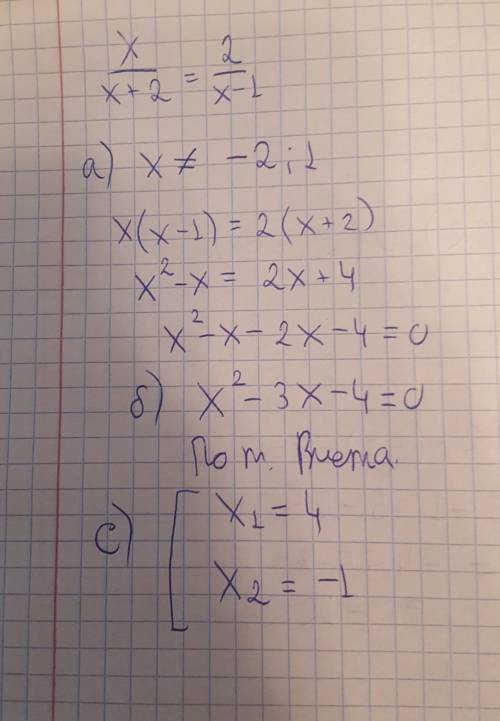 x/(x+2) = 2/(x-1)
а) x ≠ -2; 1
x(x-1) = 2(x+2)
x² - x = 2x + 4
x² - x - 2x - 4 = 0
б) x² - 3x - 4 = 0
По т. Виета.
с) [ x₁ = 4
x₂ = -1